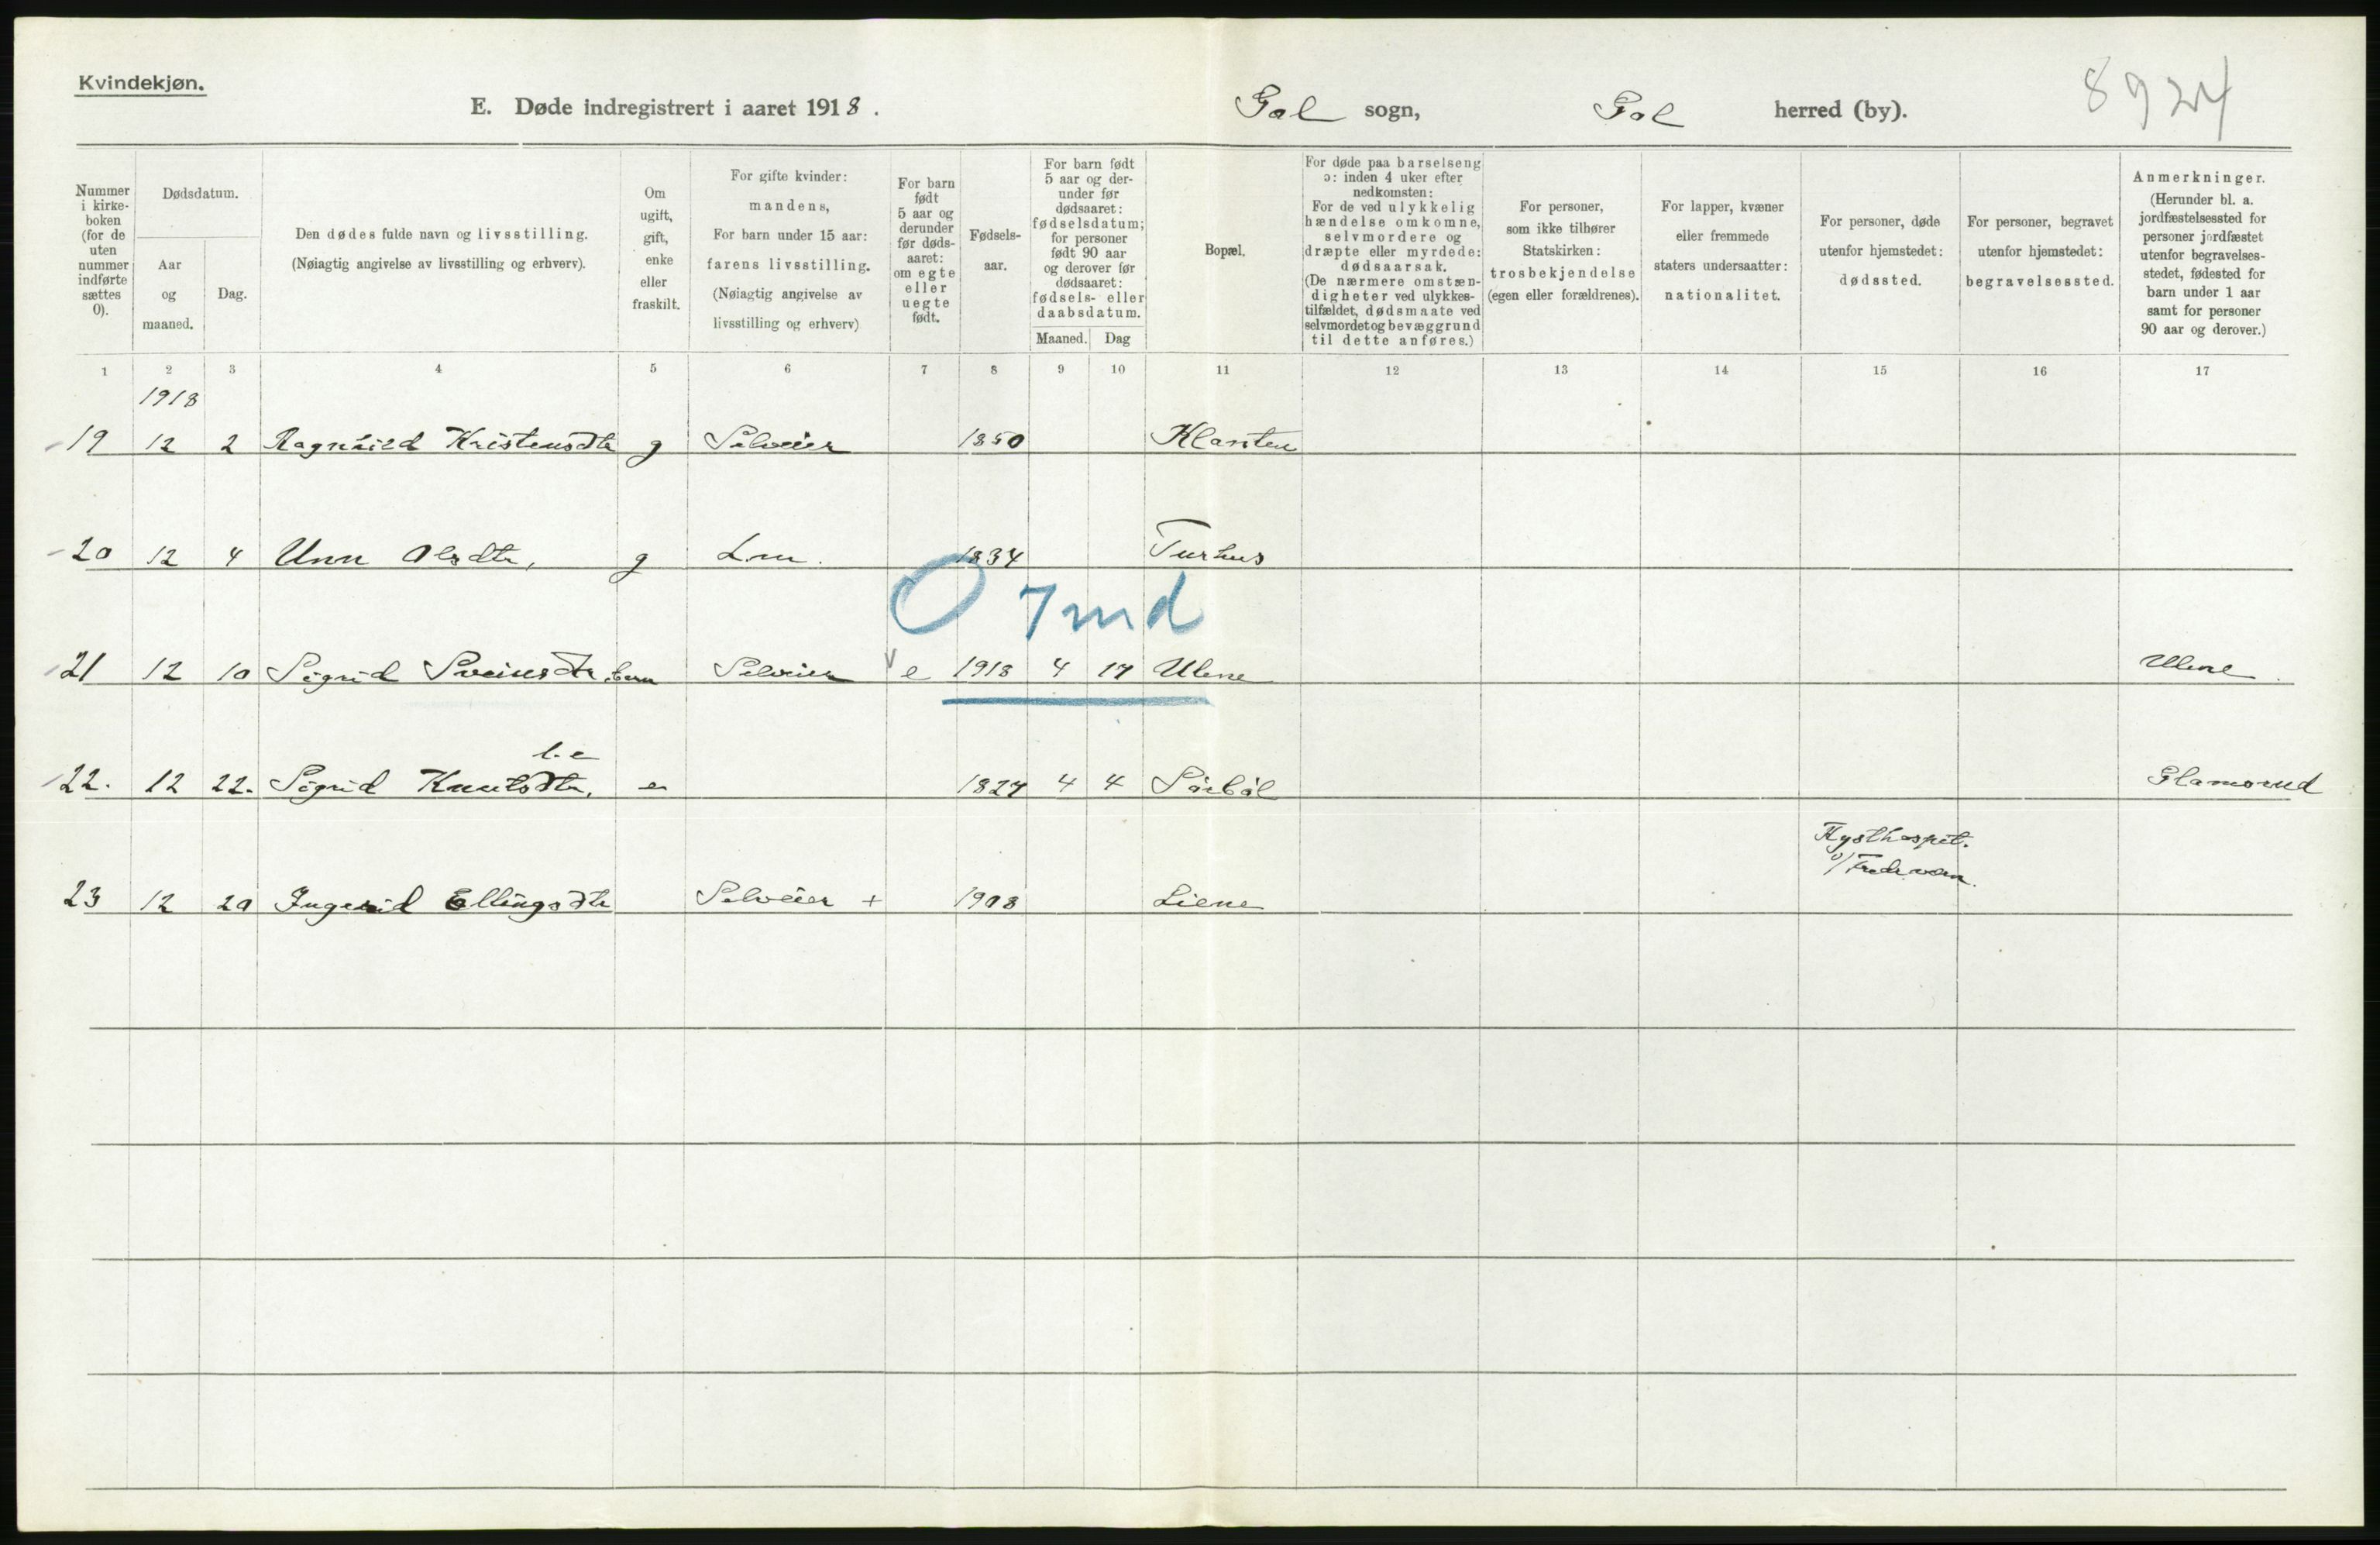 Kvindekjøn.
E. Døde indregistrert i aaret 1918.
Gol sogn, Gol herred (by).
8924
Nummer i kirke-boken (for de uten nummer indførte sættes 0).
Dødsdatum.
Aar og maaned.
Dag.
Den dødes fulde navn og livsstilling.
(Nøiagtig angivelse av livsstilling og erhverv).
Om ugift, gift, enke eller fraskilt.
For gifte kvinder: mandens,
For barn under 15 aar: farens livsstilling.
(Nøiagtig angivelse av livsstilling og erhverv)
For barn født 5 aar og derunder før døds-aaret: om egte eller uegte født.
Fødsels-aar.
For barn født 5 aar og der-under før dødsaaret: fødselsdatum; for personer født 90 aar og derover før dødsaaret: fødsels- eller daabsdatum.
Maaned. Dag
Bopæl.
For døde paa barselseng ɔ: inden 4 uker efter nedkomsten:
For de ved ulykkelig hændelse omkomne, selvmordere og dræpte eller myrdede: dødsaarsak.
(De nærmere omstæn-digheter ved ulykkes-tilfældet, dødsmaate ved selvmordet og bevæggrund til dette anføres.)
For personer, som ikke tilhører Statskirken: trosbekjendelse (egen eller forældrenes).
For lapper, kvæner eller fremmede staters undersaatter: nationalitet.
For personer, døde utenfor hjemstedet: dødssted.
For personer, begravet utenfor hjemstedet: begravelsessted.
Anmerkninger.
(Herunder bl. a. jordfæstelsessted for personer jordfæstet utenfor begravelses-stedet, fødested for barn under 1 aar samt for personer 90 aar og derover.)
1 2 3 4 5 6 7 8 9 10 11 12 13 14 15 16 17
1918
19 12 2 Ragnhild Kristensdtr g Selveier 1850 Klanten
20 12 4 Unn Olsdtr, g Lm. 1834 Turhus
0 7 md
21 12 10 Sigrid Sveinsdtr. barn Selveier e 1918 4 17 Ulene Ulene.
l.e
22. 12 22. Sigrid Knutsdtr. e 1827 4 4 Sørbøl Glamsrud
Kysthospit.
v/ Fredsværn.
23 12 20 Ingerid Ellingsdtr Selveier + 1908 Liene